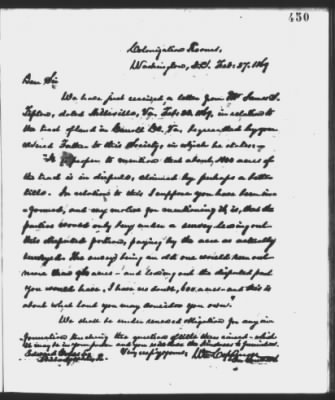 450
Colonization Rooms,
Washington, D.C. Feb: 27. 1869
Dear Sir
We have just received a letter from Mr James S.
dated Hillsville, Va, Feb: 22. 1869, in relation to
the tract of land in Carroll Co. Va, bequeathed by your
Father to this Society, in which he states—
proper to mention that about 1000 acres of
the tract is in dispute, claimed by perhaps a better
title. In relation to this I suppose you have been in-
formed, and my motive for mentioning it, is, that the
parties would only buy under a survey leaving out
this disputed portion, paying by the acre as actually
The survey being an old one would run out
more than acres— and leaving out the disputed part
you would have, I have no doubt, acres—and this is
about what land you may consider you own."
We shall be under renewed obligation for any in-
formation touching the question of title
may be in your power and you will have the kindness to furnish us.
Very respy yours,